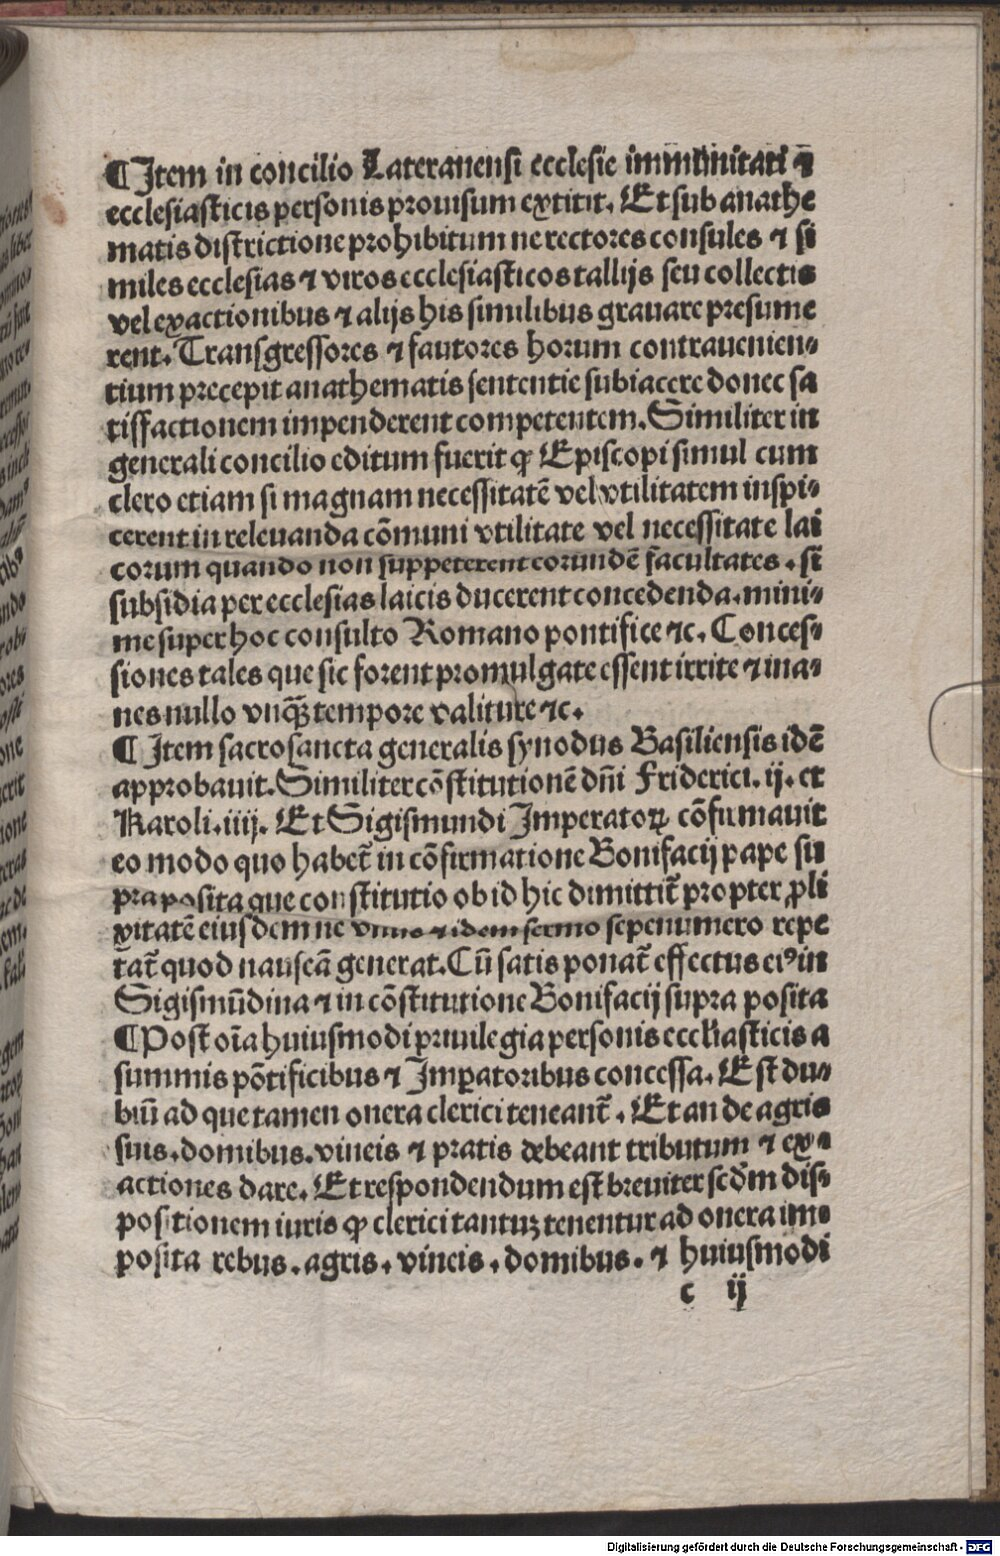 ¶Item in concilio Lateranensi ecclesie immunitati ⁊
ecclesiasticis personis prouisum extitit. Et sub anathe
matis districtione prohibitum ne rectores consules ⁊ si
miles ecclesias ⁊ viros ecclesiasticos tallijs seu collectis
vel exactionibus ⁊ alijs his similibus grauare presume
rent. Transgressores ⁊ fautores horum contrauenien⸗
tium precepit anathematis sententie subiacere donec sa
tissfactionem impenderent competentem. Similiter in
generali concilio editum fuerit ꝙ Episcopi simul cum
clero etiam si magnam necessitatē vel vtilitatem inspi⸗
cerent in releuanda cōmuni vtilitate vel necessitate lai
corum quando non suppeterent eorundē facultates. si
subsidia per ecclesias laicis ducerent concedenda. mini⸗
me super hoc consulto Romano pontifice ⁊c. Conces⸗
siones tales que sic forent promulgate essent irrite ⁊ ina⸗
nes nullo vnqꝫ tempore valiture ⁊c.
¶Item sacrosancta generalis synodus Basiliensis idē
approbauit. Similiter cōstitutionē dn̄i Friderici. ij. et
Karoli. iiij. Et Sigismundi Imperatoꝝ cōfirmauit
eo modo quo habet̄ in cōfirmatione Bonifacij pape su
pra posita que constitutio ob id hic dimittit̄ propter ꝓli
xitatē eiusdem ne vnus ⁊ idem sermo sepenumero repe
tat̄ quod nauseā generat. Cū satis ponat̄ effectus eiꝰ in
Sigismūdina ⁊ in cōstitutione Bonifacij supra posita
¶Post oīa huiusmodi priuilegia personis eccl'iasticis a
summis pōtificibus ⁊ Imꝑatoribus concessa. Est du⸗
biū ad que tamen onera clerici teneant̄. Et an de agris
suis. domibus. vineis ⁊ pratis debeant tributum ⁊ ex⸗
actiones dare. Et respondendum est breuiter scd̄m dis⸗
positionem iuris ꝙ clerici tantuꝫ tenentur ad onera im⸗
posita rebus. agris. vineis. domibus. ⁊ huiusmodi
c ij
Digitalisierung gefördert durch die Deutsche Forschungsgemeinschaft - DFG